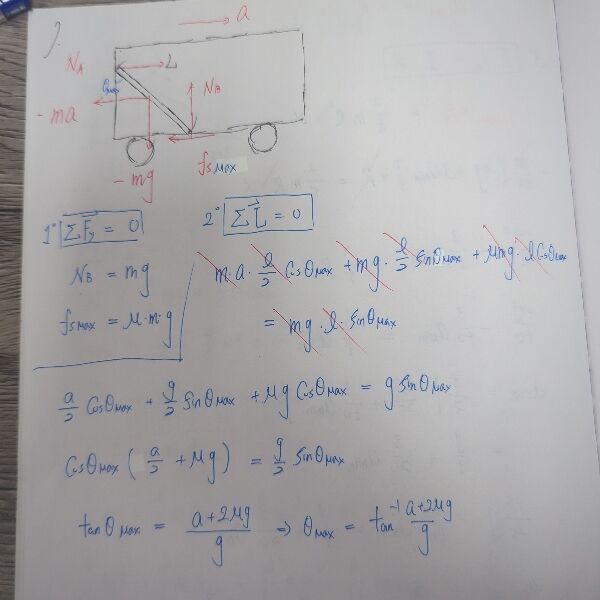 1.
a
N_A
L
N_B
θ_max
- ma
f_s max
- mg
1° ΣF_y = 0
2° Στ = 0
N_B = mg
m·a·l/2 cosθ_max + mg·l/2 sinθ_max + μmg·l cosθ_max
f_s max = μ·m·g
= mg·l·sinθ_max
a/2 cosθ_max + g/2 sinθ_max + μg cosθ_max = g sinθ_max
cosθ_max (a/2 + μg) = g/2 sinθ_max
tanθ_max = (a+2μg)/g ⇒ θ_max = tan⁻¹ (a+2μg)/g